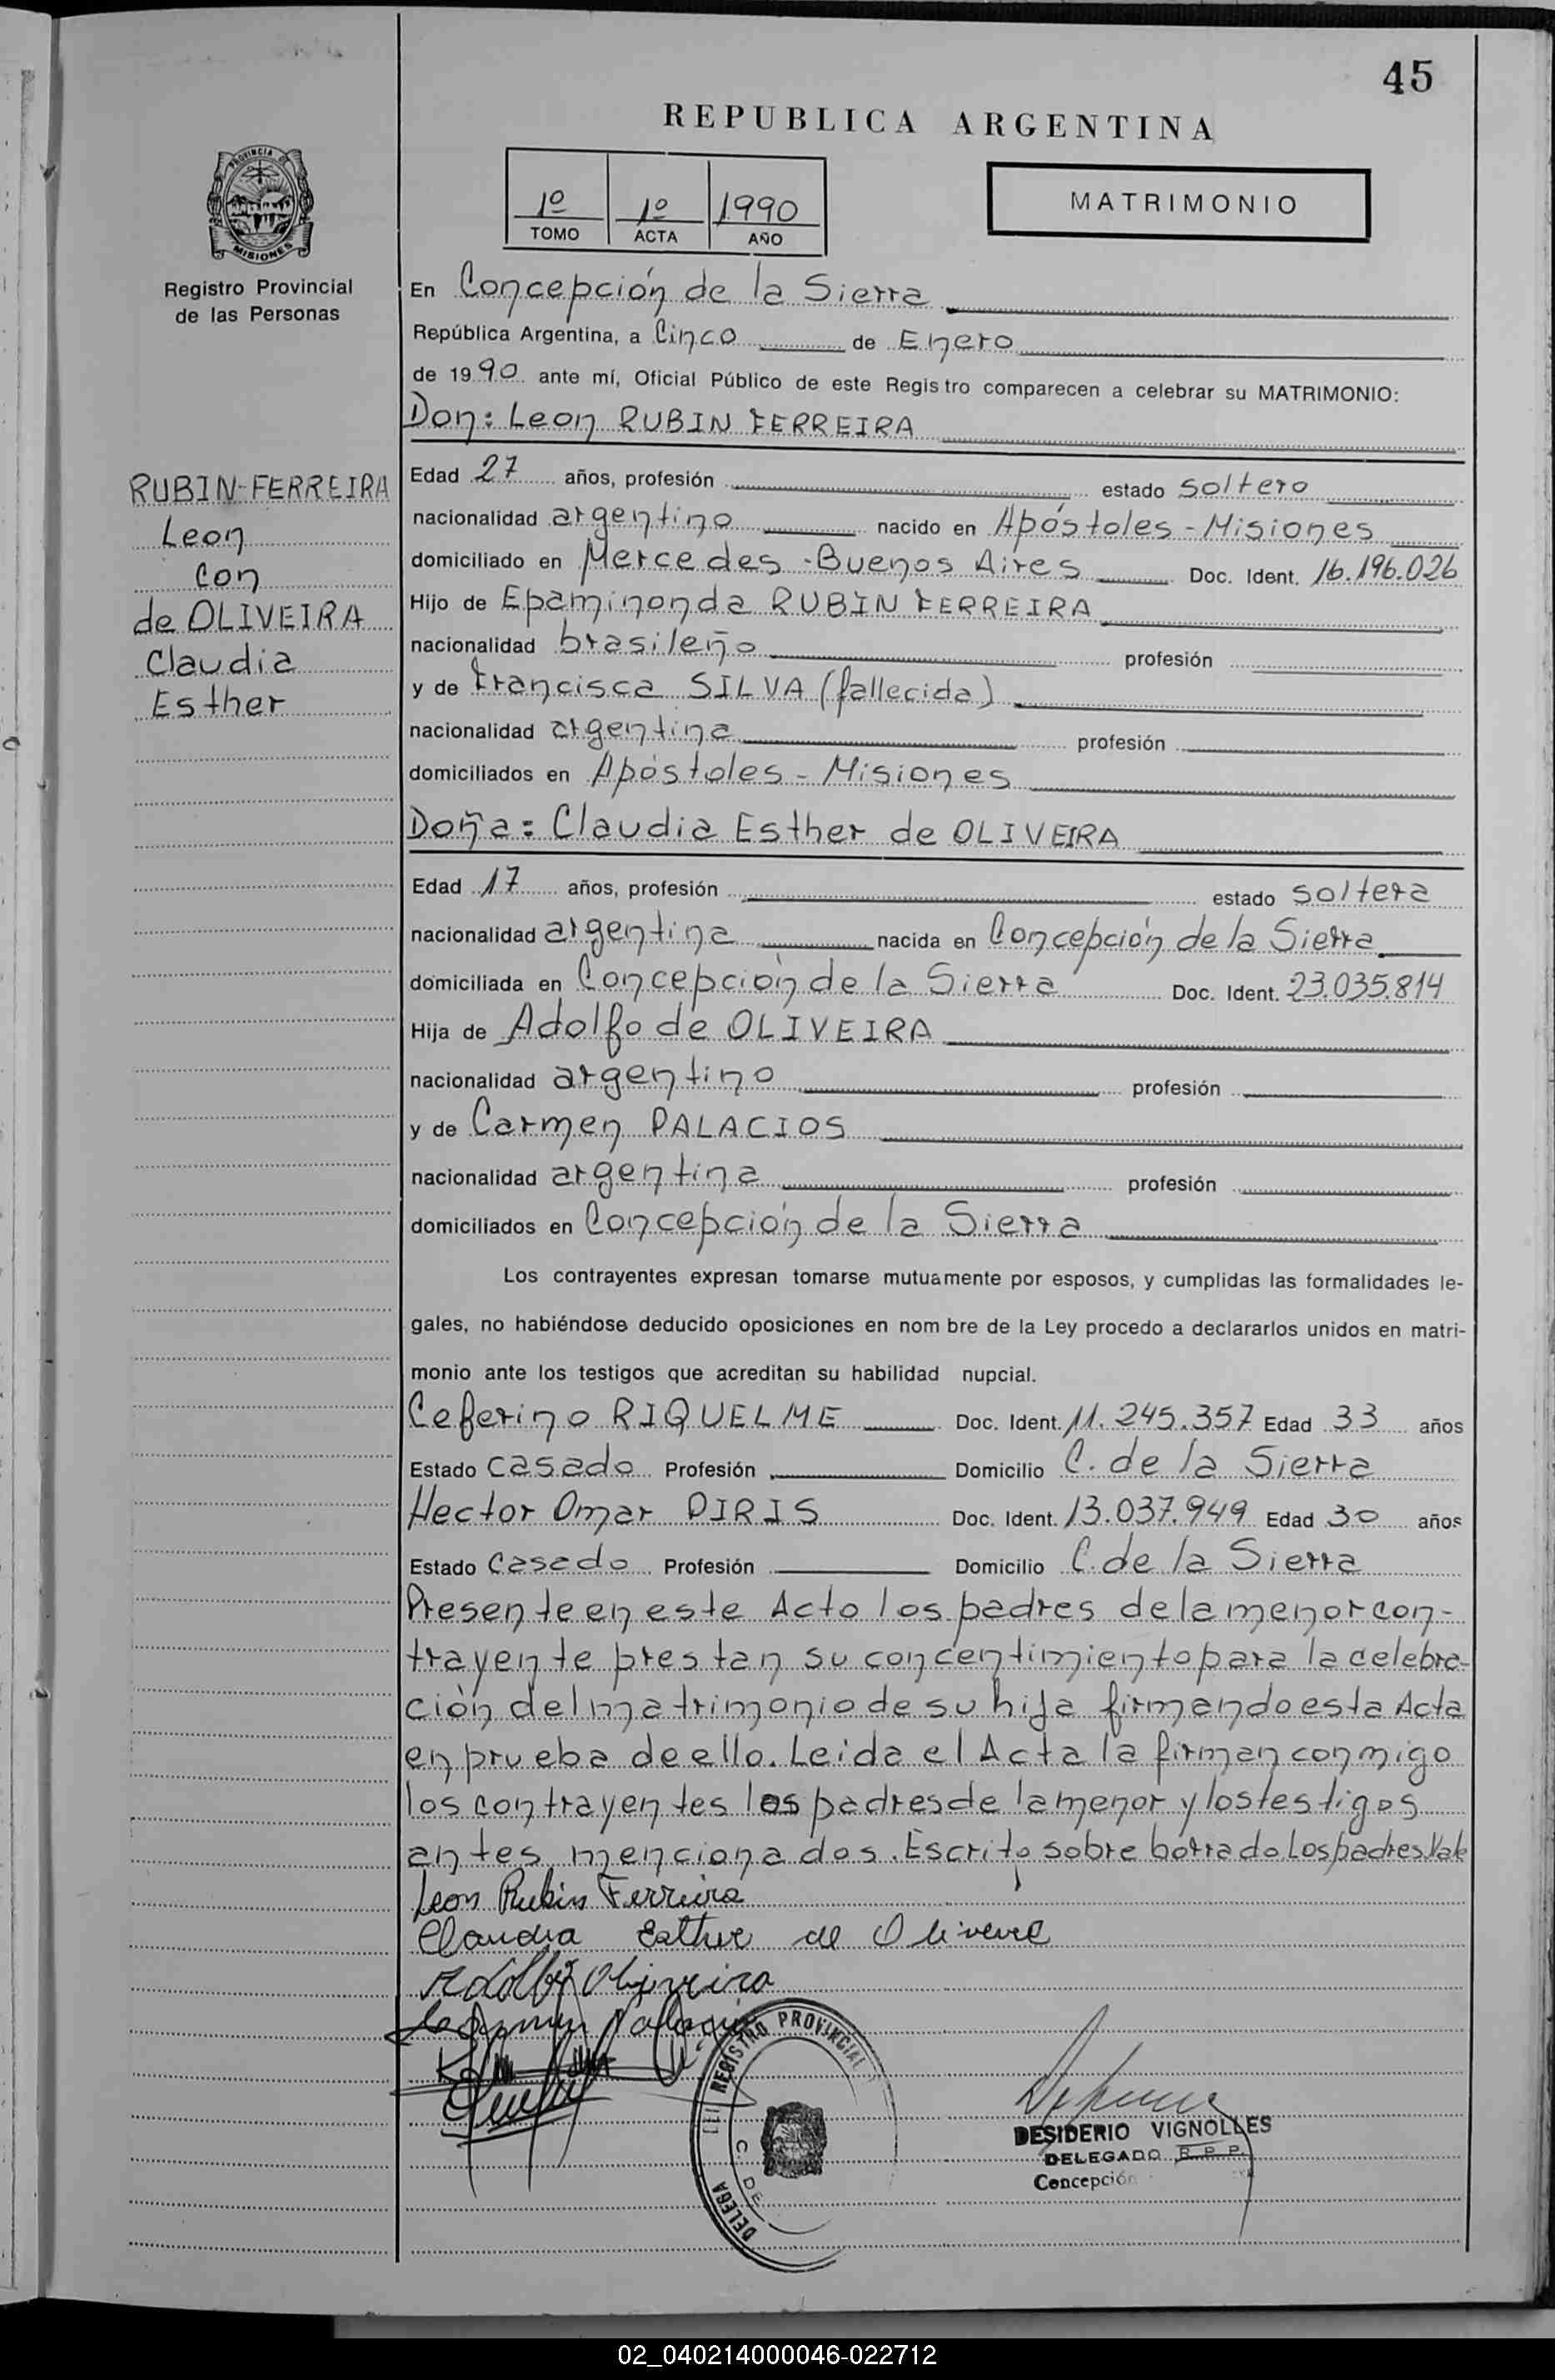 45
REPUBLICA ARGENTINA
PROVINCIA DE
MISIONES
Registro Provincial
de las Personas
1º 1º 1990
TOMO ACTA AÑO
MATRIMONIO
En Concepción de la Sierra
República Argentina, a Cinco de Enero
de 1990 ante mí, Oficial Público de este Registro comparecen a celebrar su MATRIMONIO:
Don: Leon RUBIN FERREIRA
RUBIN-FERREIRA
Leon
con
de OLIVEIRA
Claudia
Esther
Edad 27 años, profesión estado soltero
nacionalidad argentino nacido en Apóstoles - Misiones
domiciliado en Mercedes - Buenos Aires Doc. Ident. 16.196.026
Hijo de Epaminonda RUBIN FERREIRA
nacionalidad brasileño profesión
y de Francisca SILVA (fallecida)
nacionalidad argentina profesión
domiciliados en Apóstoles - Misiones
Doña: Claudia Esther de OLIVEIRA
Edad 17 años, profesión estado soltera
nacionalidad argentina nacida en Concepción de la Sierra
domiciliada en Concepción de la Sierra Doc. Ident. 23.035.814
Hija de Adolfo de OLIVEIRA
nacionalidad argentino profesión
y de Carmen PALACIOS
nacionalidad argentina profesión
domiciliados en Concepción de la Sierra
Los contrayentes expresan tomarse mutuamente por esposos, y cumplidas las formalidades le-
gales, no habiéndose deducido oposiciones en nombre de la Ley procedo a declararlos unidos en matri-
monio ante los testigos que acreditan su habilidad nupcial.
Ceferino RIQUELME Doc. Ident. 11.245.357 Edad 33 años
Estado casado Profesión Domicilio C. de la Sierra
Hector Omar PIRIS Doc. Ident. 13.037.949 Edad 30 años
Estado casado Profesión Domicilio C. de la Sierra
Presente en este Acto los padres de la menor con-
trayente prestan su concentimiento para la celebra-
ción del matrimonio de su hija firmando esta Acta
en prueba de ello. Leida el Acta la firman conmigo
los contrayentes los padres de la menor y los testigos
antes mencionados. Escrito sobre borrado Los padres. Vale
Leon Rubin Ferreira
Claudia Esther de Oliveire
Adolfo Oliveira
Carmen Palacio
REGISTRO PROVINCIAL
DELEGA
C. DE
DESIDERIO VIGNOLLES
DELEGADO R. P. P.
Concepción
02_040214000046-022712